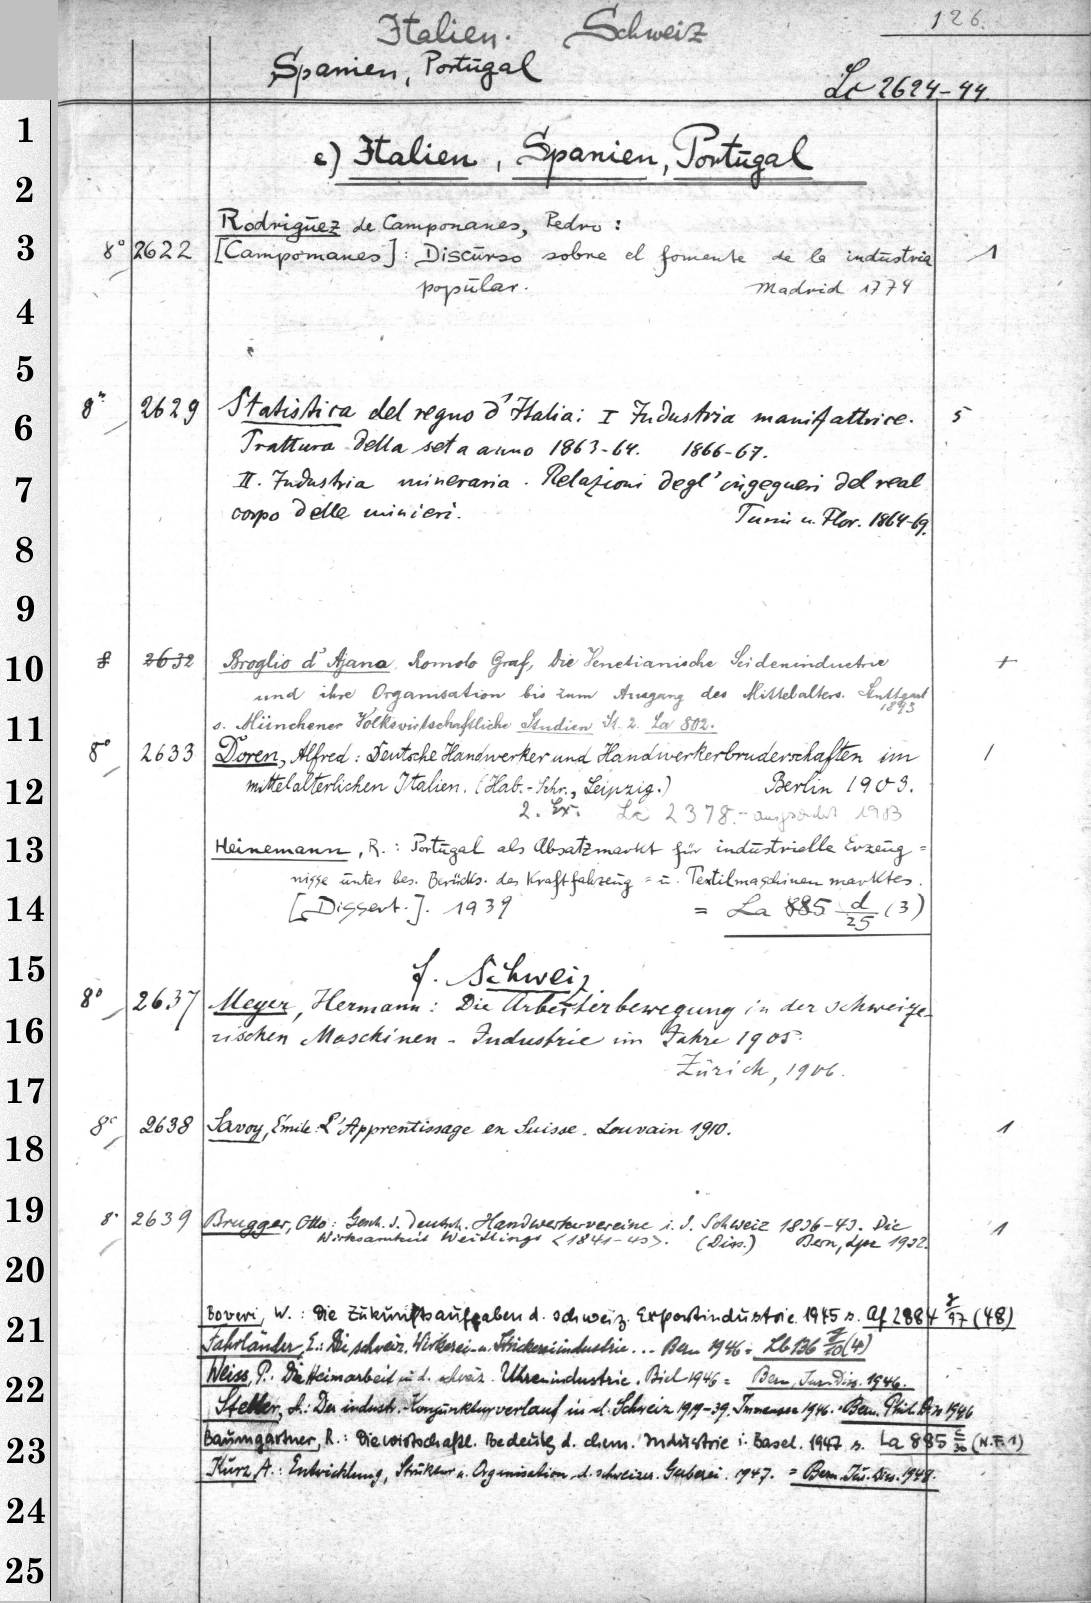 126.
Italien. Schweiz
Spanien, Portugal
Lc 2624-44.
e) Italien, Spanien, Portugal
Rodriguez de Campomanes, Pedro:
8° 2622 [Campomanes]: Discurso sobre el fomente de la industria 1
popular. Madrid 1774
8° 2629 Statistica del regno d'Italia: I Industria manifattrice. 5
Trattura della seta anno 1863-64. 1866-67.
II. Industria mineraria. Relazioni degl'ingegneri del real
corpo delle minieri. Turin u. Flor. 1864-69.
8 2632 Broglio d'Ajana Romolo Graf, Die Venetianische Seidenindustrie +
und ihre Organisation bis zum Ausgang des Mittelalters. Stuttgart
1893
s. Münchener Volkswirtschaftliche Studien St. 2. La 802.
8° 2633 Doren, Alfred: Deutsche Handwerker und Handwerkerbruderschaften im 1
mittelalterlichen Italien. (Hab.-Schr., Leipzig.) Berlin 1903.
2. Ex. Lc 2378.- 1983
Heinemann, R.: Portugal als Absatzmarkt für industrielle Erzeug=
nisse unter bes. Berücks. des Kraftfahrzeug= u. Textilmaschinenmarktes.
[Dissert.]. 1939 = La 885 d/25 (3)
f. Schweiz
8° 2637 Meyer, Hermann: Die Arbeiterbewegung in der schweize-
rischen Maschinen-Industrie im Jahre 1905.
Zürich, 1906.
8° 2638 Savoy, Émile: L'Apprentissage en Suisse. Louvain 1910. 1
8° 2639 Brugger, Otto: Gesch. d. deutsch. Handwerkervereine i. d. Schweiz 1836-43. Die 1
Wirksamkeit Weitlings <1841-43>. (Diss.) Bern, 1932.
Boveri, W.: Die Zukunftsaufgaben d. schweiz. Exportindustrie. 1945 s. Af 2884 97 (48)
Fahrländer, E.: Die schweiz. Wirkerei- u. Strickereiindustrie... Bern 1946 = Lb 136 (4)
Weiss, P.: Die Heimarbeit in d. schweiz. Uhrenindustrie. Biel 1946 = Bern, Jur. Diss. 1946.
Steller, A.: Der industr. Konjunkturverlauf in d. Schweiz 1919-39. Immensee 1946. = Bern. Phil. Diss 1946
Baumgartner, R.: Die wirtschaftl. Bedeutg d. chem. Industrie i. Basel. 1947 s. La 885 (N.F. 1)
Kurz, A.: Entwicklung, Struktur u. Organisation d. schweizer. Gerberei. 1947. = Bern. Jur. Diss. 1948.
1
2
3
4
5
6
7
8
9
10
11
12
13
14
15
16
17
18
19
20
21
22
23
24
25